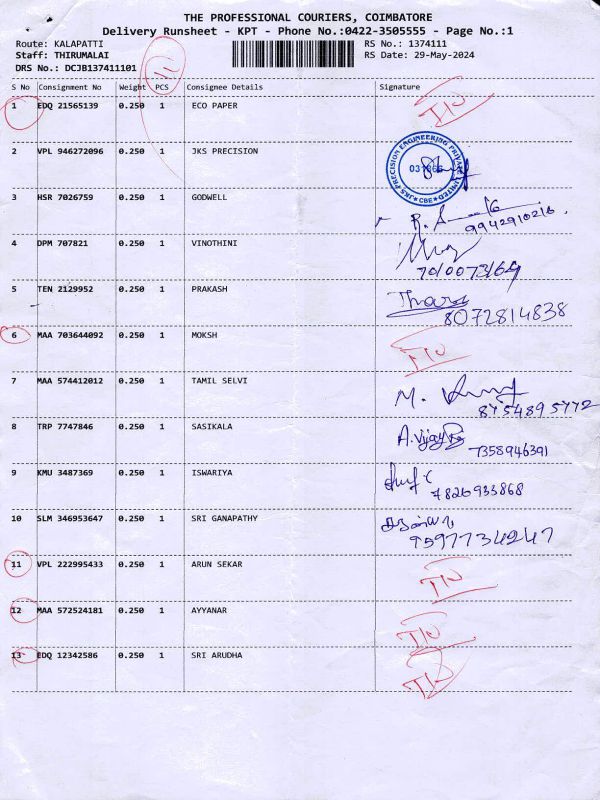 THE PROFESSIONAL COURIERS, COIMBATORE
Delivery Runsheet - KPT - Phone No.:0422-3505555 - Page No.:1
Route: KALAPATTI RS No.: 1374111
Staff: THIRUMALAI RS Date: 29-May-2024
DRS No.: DCJB137411101
11
S No Consignment No Weight PCS Consignee Details Signature
1 EDQ 21565139 0.250 1 ECO PAPER
2 VPL 946272096 0.250 1 JKS PRECISION
JKS PRECISION ENGINEERING PRIVATE LIMITED
CBE
3 HSR 7026759 0.250 1 GODWELL
9942910216
4 DPM 707821 0.250 1 VINOTHINI
5 TEN 2129952 0.250 1 PRAKASH
8072814838
6 MAA 703644092 0.250 1 MOKSH
7 MAA 574412012 0.250 1 TAMIL SELVI
M.
8754895772
8 TRP 7747846 0.250 1 SASIKALA
7358946391
9 KMU 3487369 0.250 1 ISWARIYA
7826933868
10 SLM 346953647 0.250 1 SRI GANAPATHY
9597734247
11 VPL 222995433 0.250 1 ARUN SEKAR
12 MAA 572524181 0.250 1 AYYANAR
13 EDQ 12342586 0.250 1 SRI ARUDHA